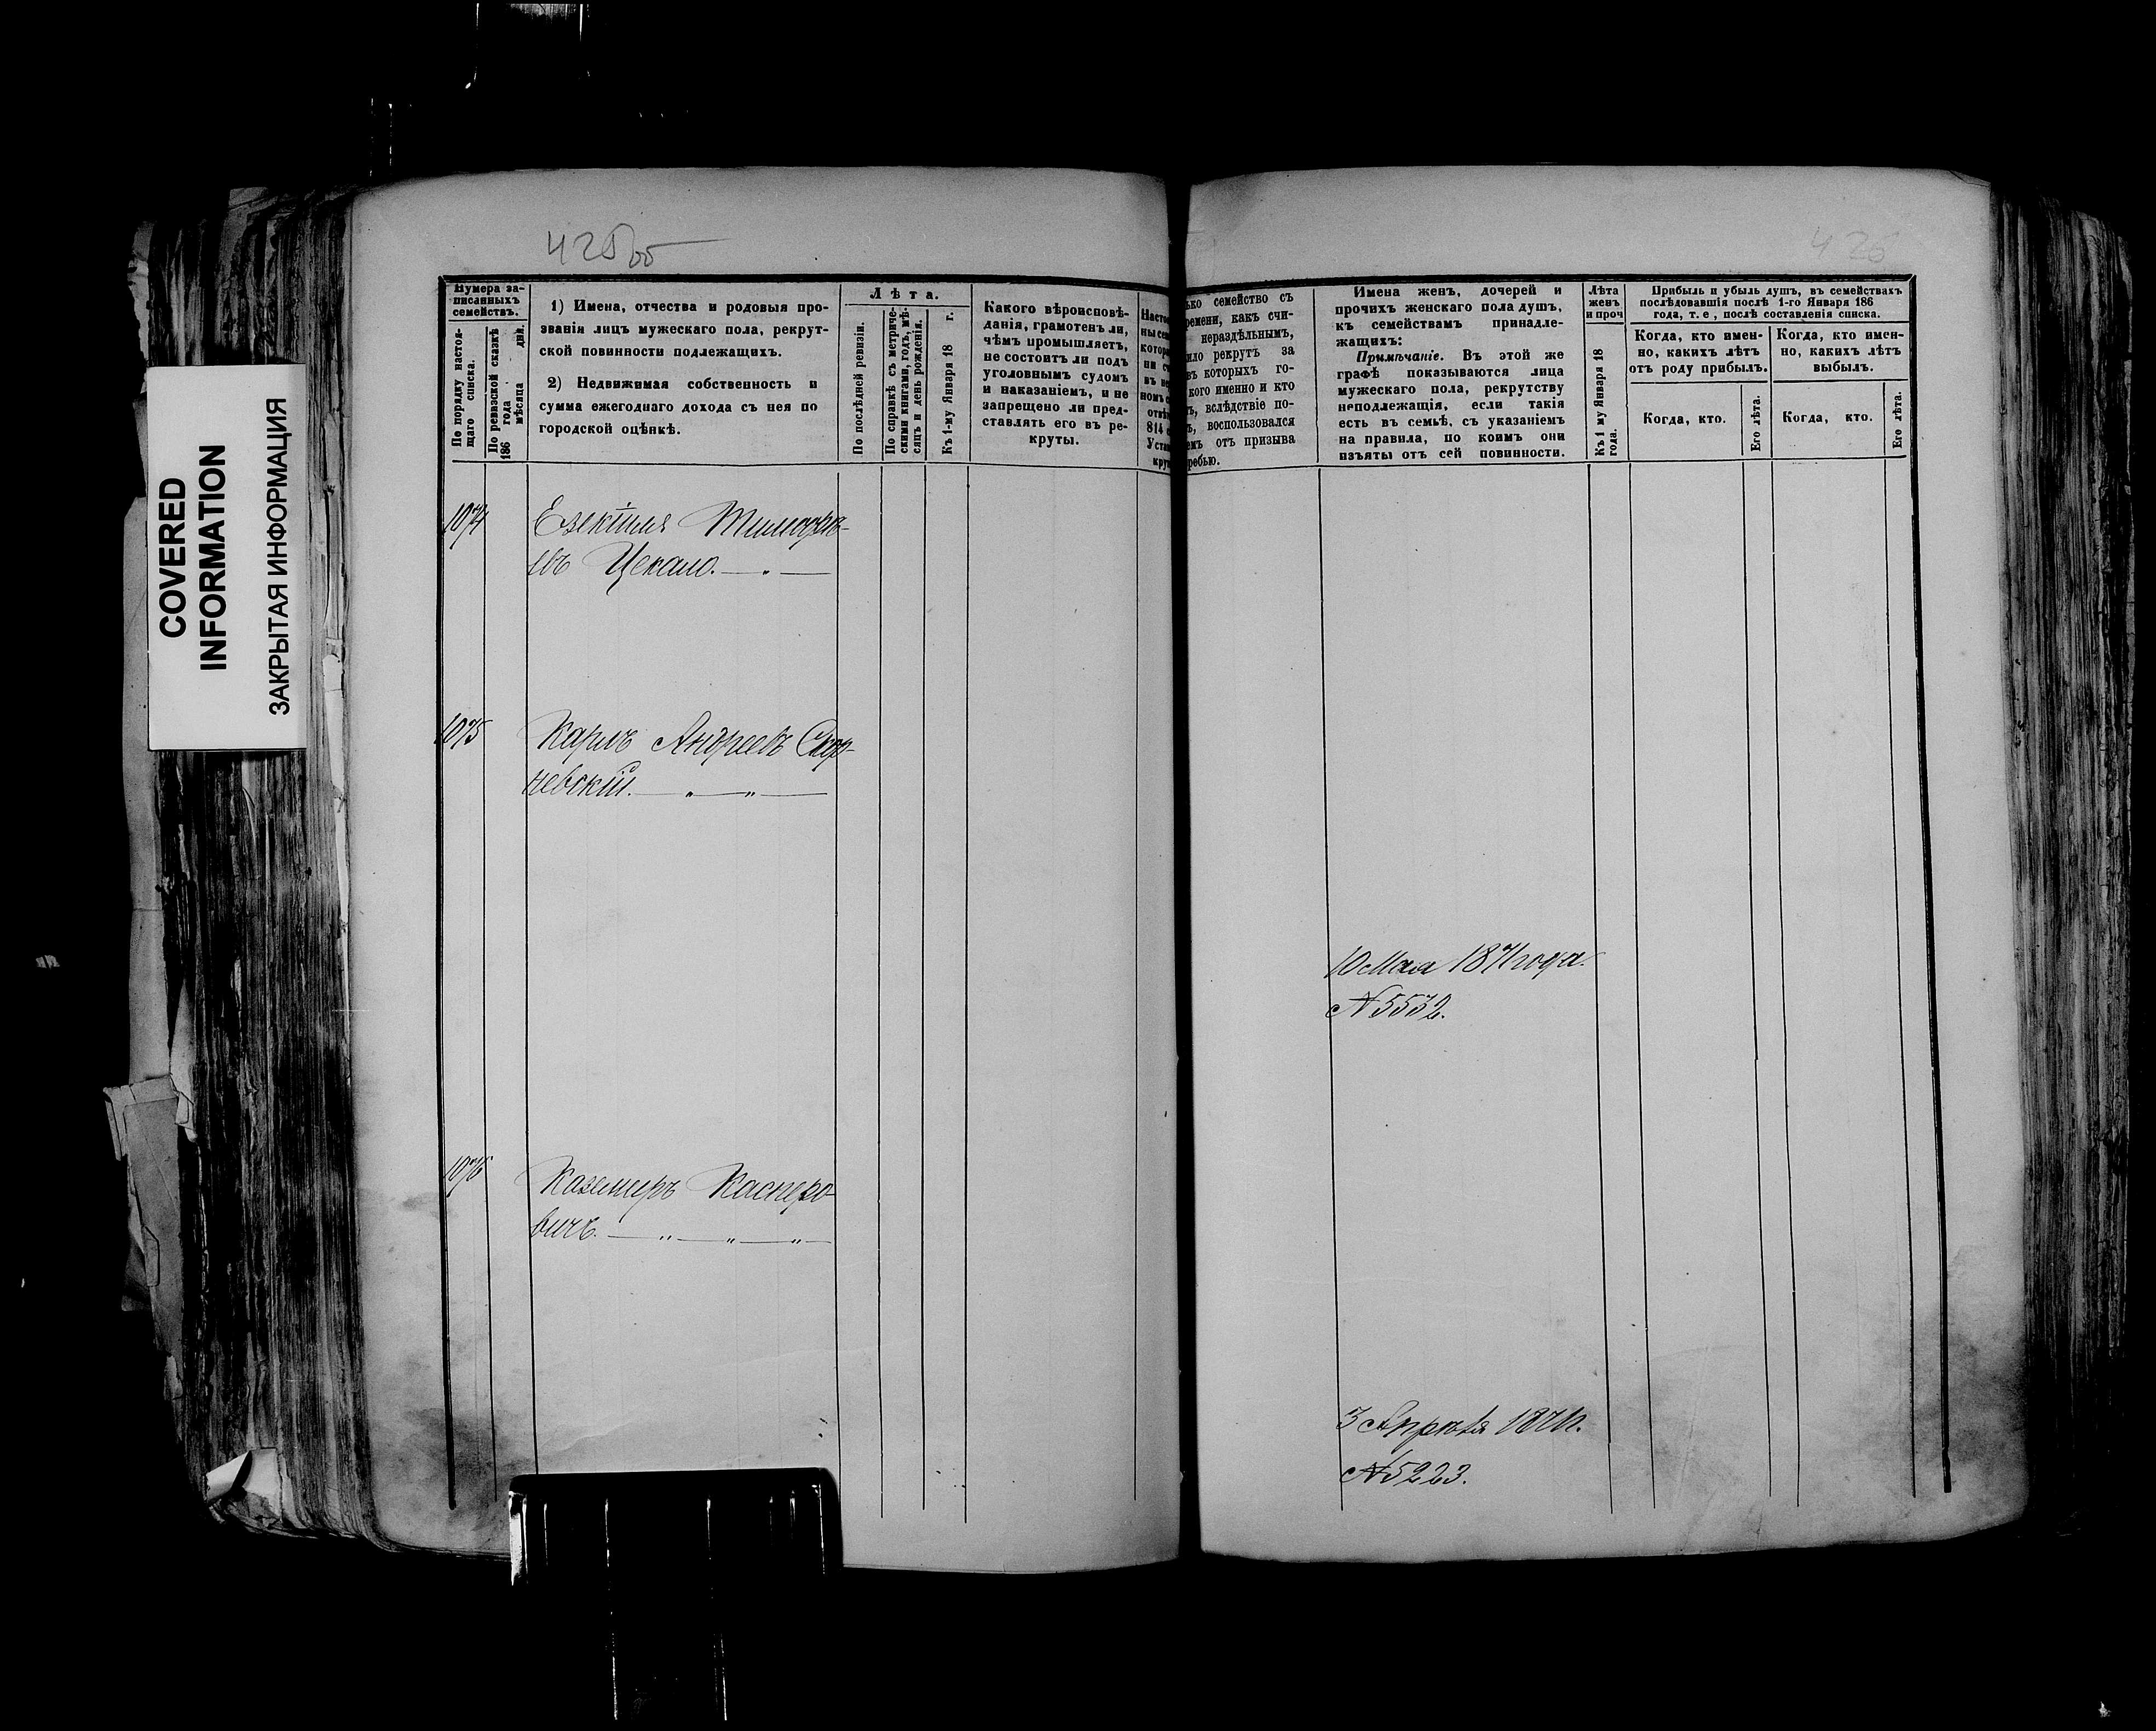 COVERED
INFORMATION
ЗАКРЫТАЯ ИНФОРМАЦИЯ
425об
426
Нумера за-
писанныхъ
семействъ.
По порядку настоя-
щаго списка.
По ревизской сказкѣ
186 года мѣсяца дня.
1) Имена, отчества и родовыя про-
званія лицъ мужескаго пола, рекрут-
ской повинности подлежащихъ.
2) Недвижимая собственность и
сумма ежегоднаго дохода съ нея по
городской оцѣнкѣ.
Лѣта.
По послѣдней ревизіи.
По справкѣ съ метриче-
скими книгами, годъ, мѣ-
сяцъ и день рожденія.
Къ 1-му Января 18 г.
Какого вѣроисповѣ-
данія, грамотенъ ли,
чѣмъ промышляетъ,
не состоитъ ли подъ
уголовнымъ судомъ
и наказаніемъ, и не
запрещено ли пред-
ставлять его въ ре-
круты.
семейство съ
какъ счи-
нераздѣльнымъ,
рекрутъ за
которыхъ го-
именно и кто
вслѣдствіе по-
воспользовался
отъ призыва
Имена женъ, дочерей и
прочихъ женскаго пола душъ,
къ семействамъ принадле-
жащихъ:
Примѣчаніе. Въ этой же
графѣ показываются лица
мужескаго пола, рекрутству
неподлежащія, если такія
есть въ семьѣ, съ указаніемъ
на правила, по коимъ они
изъяты отъ сей повинности.
Лѣта
женъ
и проч
Къ 1 му Января 18
года.
Прибыль и убыль душъ, въ семействахъ
послѣдовавшія послѣ 1-го Января 186
года, т. е., послѣ составленія списка.
Когда, кто имен-
но, какихъ лѣтъ
отъ роду прибылъ.
Когда, кто.
Его лѣта.
Когда, кто имен-
но, какихъ лѣтъ
выбылъ.
Когда, кто.
Его лѣта.
1074
Езекіиля Тимофѣ-
евъ Цекало.
1075
Карлъ Андреевъ Скор-
невскій.
10 Мая 1871 года.
№ 5532.
1076
Каземиръ Касперо-
вичъ.
3 Апрѣля 1871г.
№ 5223.